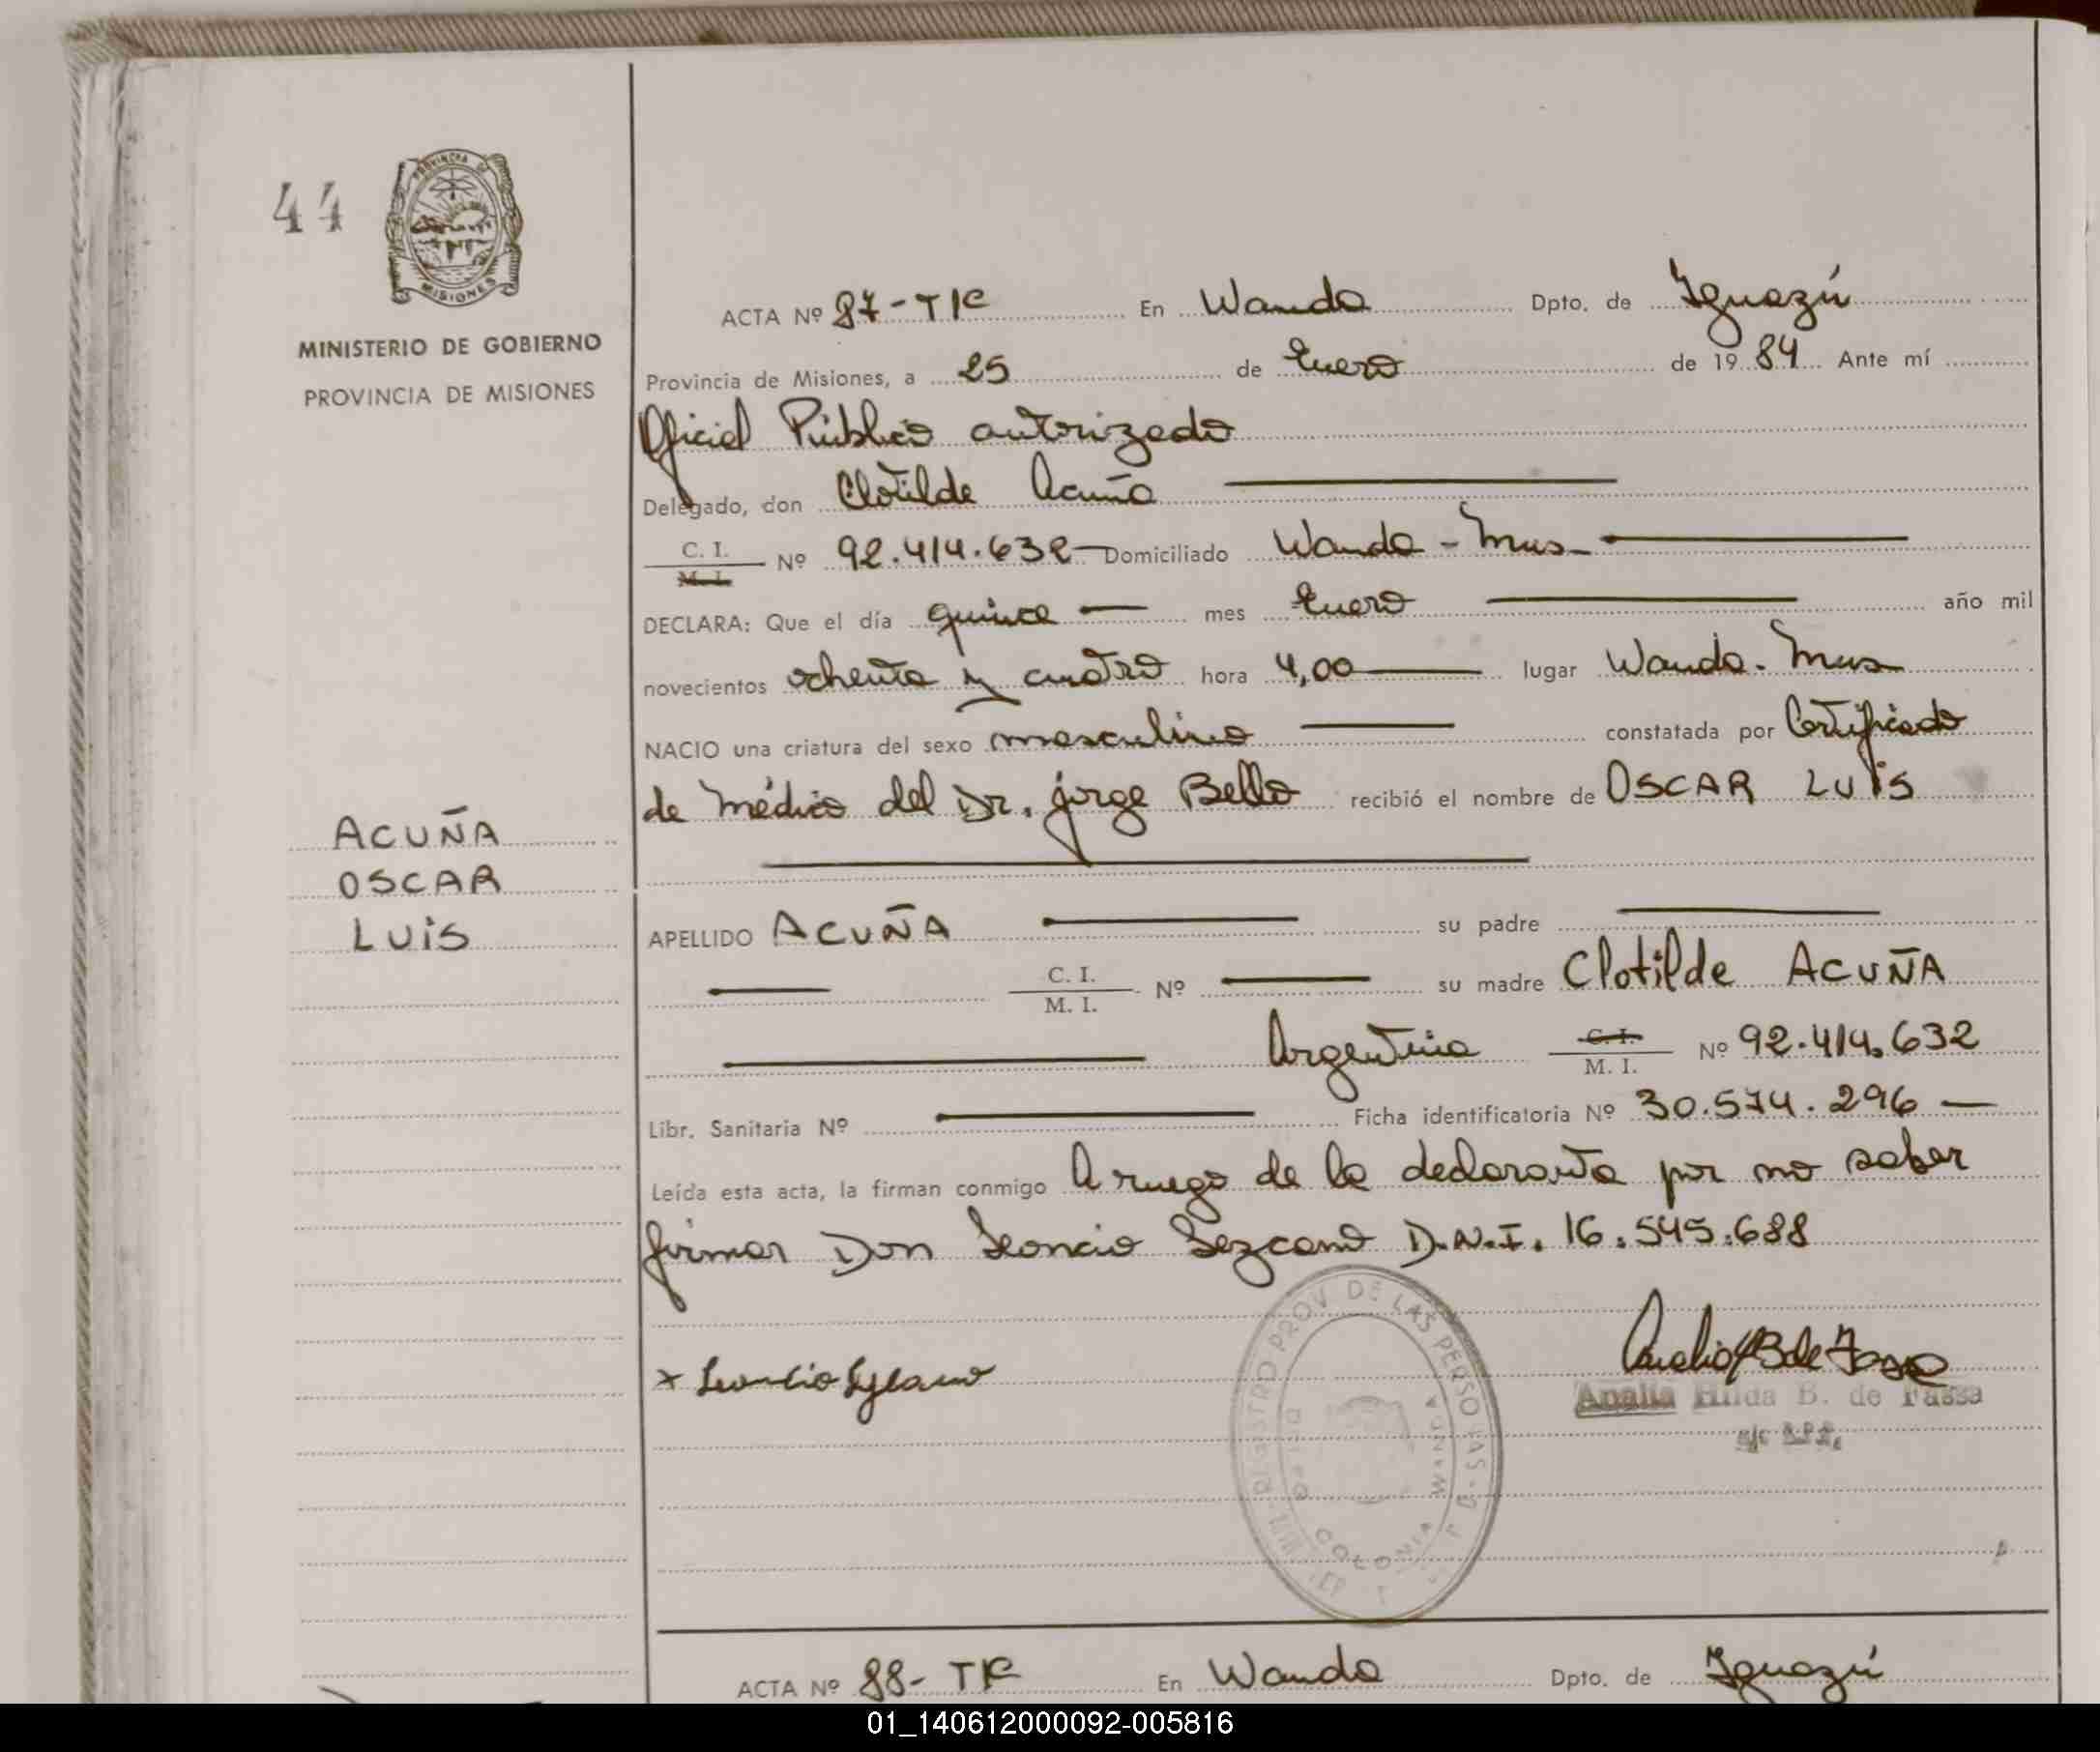 44
PROVINCIA DE
MISIONES
MINISTERIO DE GOBIERNO
PROVINCIA DE MISIONES
ACTA Nº 87-TIC En Wanda Dpto. de Iguazú
Provincia de Misiones, a 25 de Enero de 1984 Ante mí
Oficial Público autorizado
Delegado, don Clotilde Acuña
C. I.
M. I.
Nº 92.414.632 Domiciliado Wanda - Mnes
DECLARA: Que el día quince mes Enero año mil
novecientos ochenta y cuatro hora 4,00 lugar Wanda. Mnes
NACIO una criatura del sexo masculino constatada por Certificado
de Médico del Dr. Jorge Bello recibió el nombre de OSCAR LUIS
ACUÑA
OSCAR
LUIS
APELLIDO ACUÑA su padre
C. I.
M. I.
Nº su madre Clotilde ACUÑA
Argentina C. I.
M. I.
Nº 92.414.632
Libr. Sanitaria Nº Ficha identificatoria Nº 30.574.296
Leída esta acta, la firman conmigo A ruego de la declarante por no saber
firmar Don Leoncio Lezcano D.N.I. 16.545.688
REGISTRO PROV. DE LAS PERSONAS
COLONIA WANDA
x Leoncio Lezcano
Analia Hilda B. de Fassa
ACTA Nº 88- En Wanda Dpto. de Iguazú
01_140612000092-005816